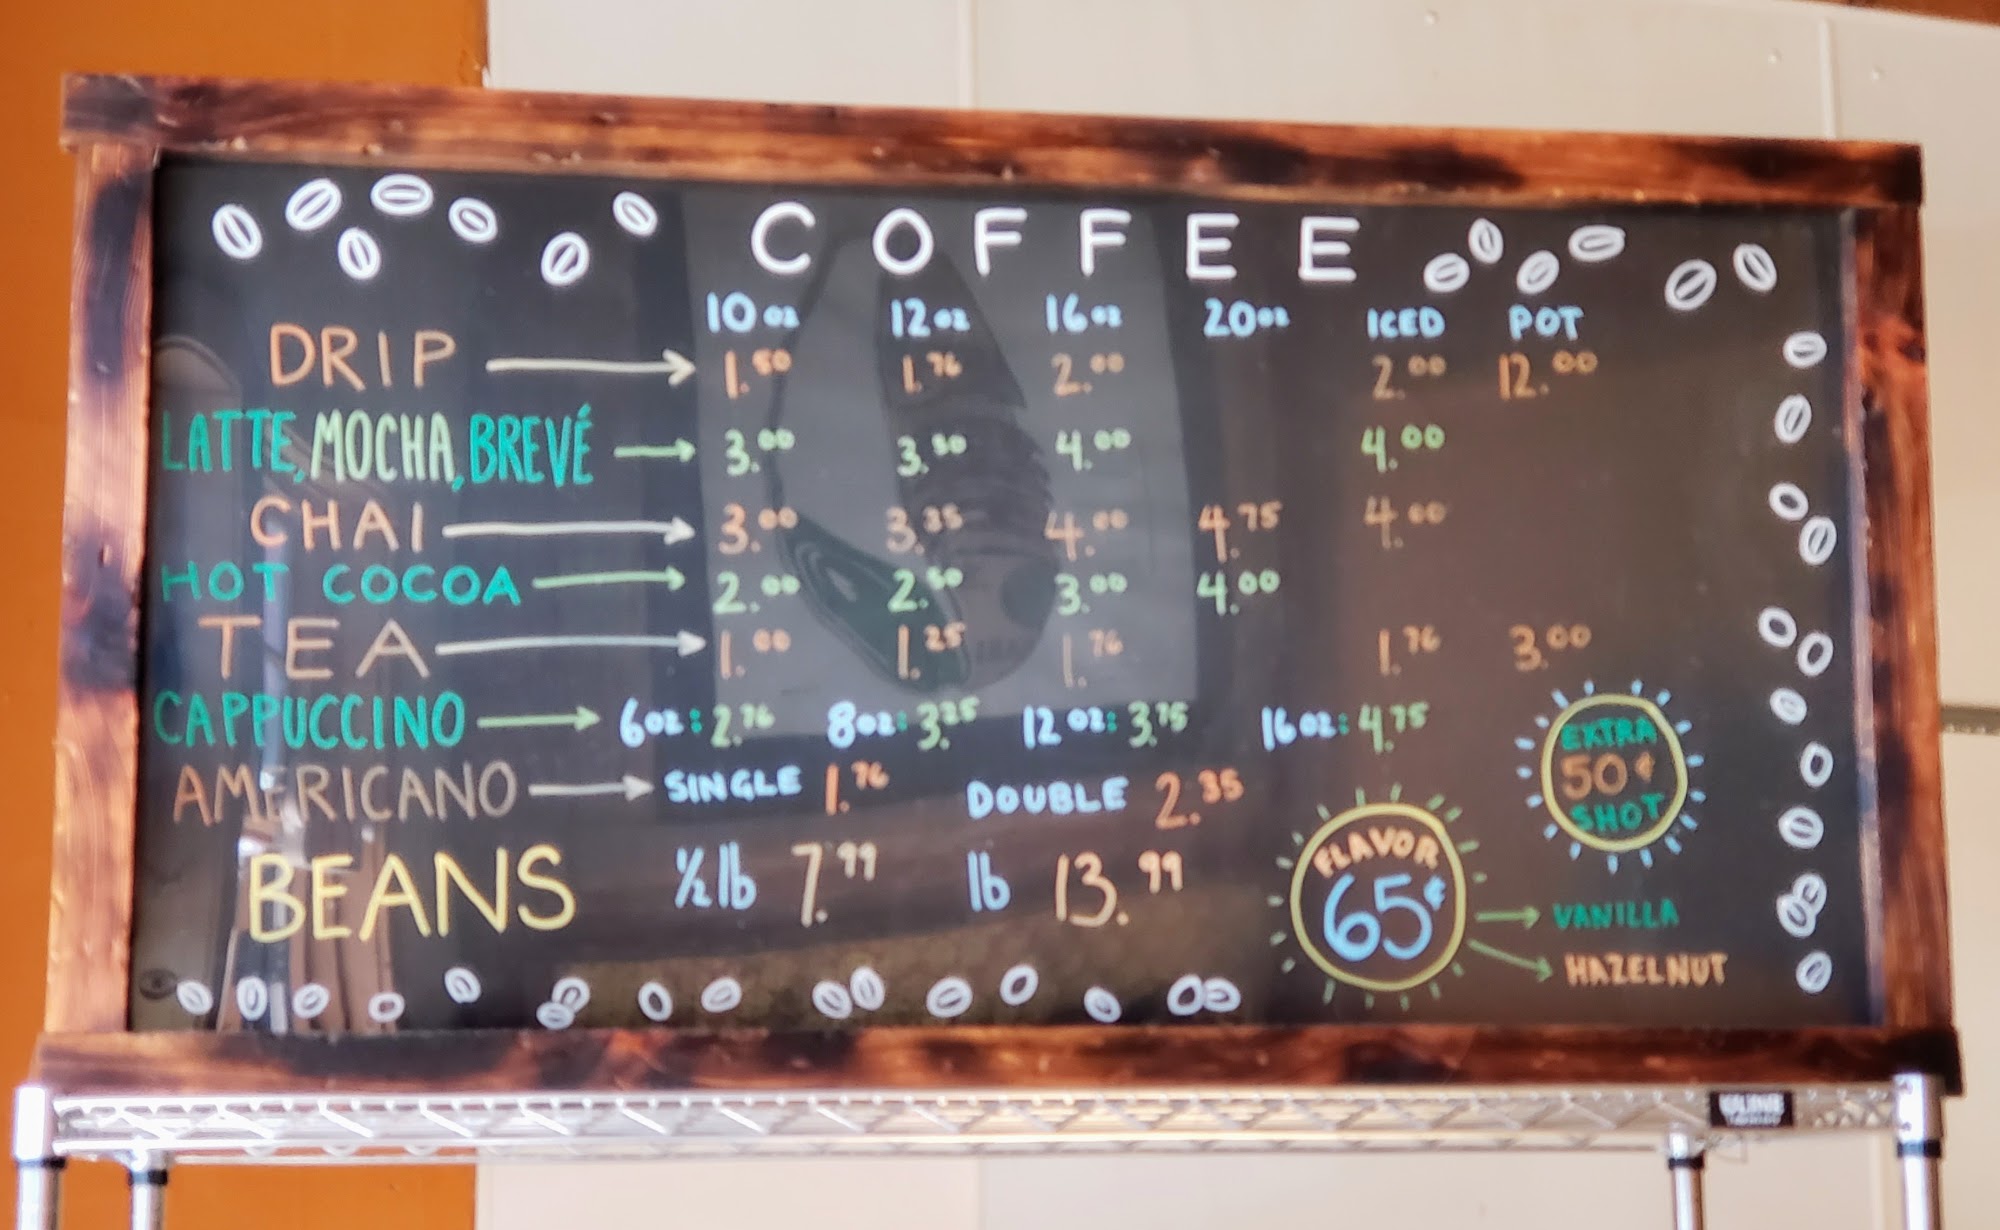 COFFEE
10oz 12oz 16oz 20oz ICED POT
DRIP 1.50 1.76 2.00 2.00 12.00
LATTE, MOCHA, BREVÉ 3.00 3.50 4.00 4.00
CHAI 3.00 3.35 4.00 4.75 4.00
HOT COCOA 2.00 2.50 3.00 4.00
TEA 1.00 1.25 1.76 1.76 3.00
CAPPUCCINO 6oz: 2.76 8oz: 3.25 12oz: 3.75 16oz: 4.75
AMERICANO SINGLE 1.76 DOUBLE 2.35
BEANS ½ lb 7.99 lb 13.99
EXTRA
50¢
SHOT
FLAVOR
65¢
VANILLA
HAZELNUT